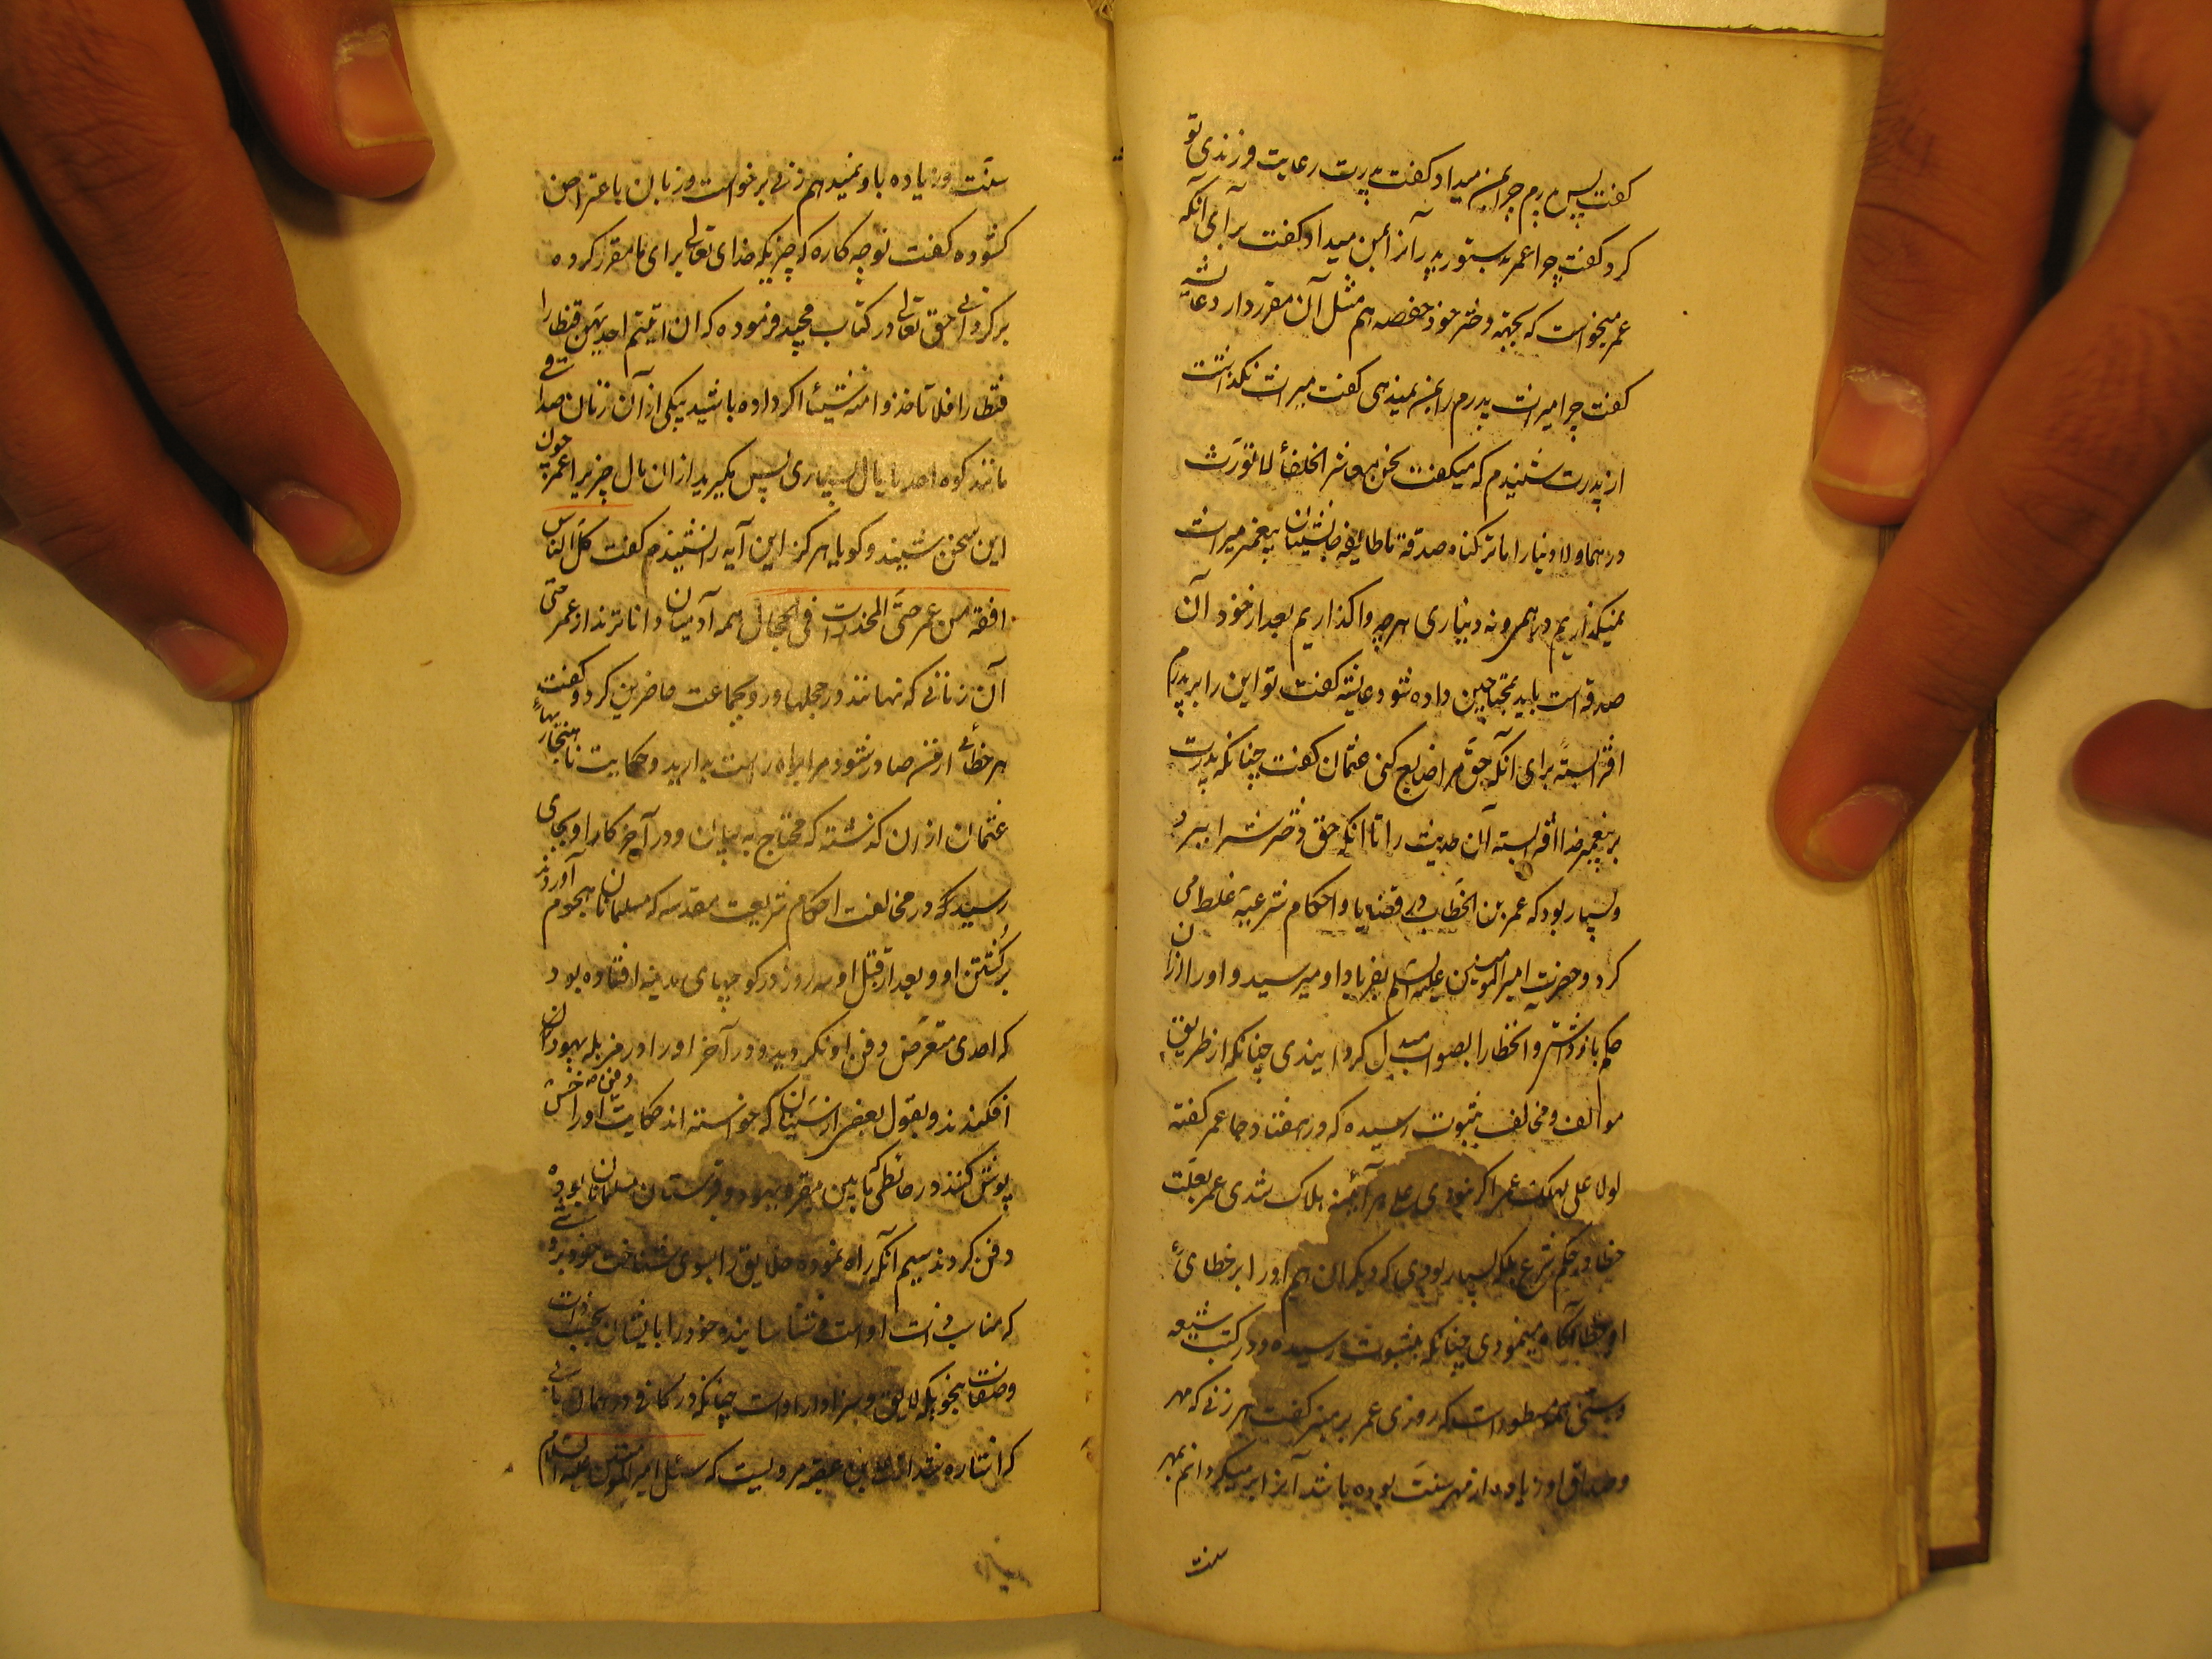 گفت پس پدرم چرا بمن میداد گفت پدرت رعایت فرزندی تو
کرد گفت چرا عمر بدستور پدر آنرا بمن میداد گفت برای آنکه
عمر میخواست که بجهته دختر خود حفصه هم مثل آن مقرر دارد عایشه
گفت چرا میراث پدرم را بمن نمیدهی گفت میراث نگذاشت
از پدرت شنیدم که میگفت نحن معاشر الخلفأ لا نورث
درهما ولا دینارا ما ترکناه صدقة ما طایفه جانشینان پیغمبر میراث
نمیگذاریم نه درهمی و نه دیناری هرچه واگذاریم بعد از خود آن
صدقه است باید بمحتاجین داده شود عایشه گفت تو این را بر پدرم
افترا بسته برای آنکه حق مرا ضایع کنی عثمان گفت چنانکه پدرت
بر پیغمبر خدا افترا بسته آن حدیث را تا آنکه حق دخترش را ببرد
و بسیار بود که عمر بن الخطاب در قضایا و احکام شرعیه غلط می
کرد و حضرت امیرالمومنین علیه السلم بفریاد او میرسید و او را از آن
حکم باز داشتی و آن خطا را بصواب مبدل گردانیدی چنانکه از طریق
موالف و مخالف بثبوت رسیده که در هفتاد جا عمر گفته
لولا علی لهلک عمر اگر نبودی علی هر آئنه هلاک شدی عمر بعلت
خطا در حکم شرع بلکه بسیار بودی که دیگران هم او را بر خطای
او خطا آگاه مینمودی چنانکه بثبوت رسیده و در کتب شیعه
و سنی هم مسطور است که روزی عمر بر منبر گفت هر زنی که مهر
و صداق او زیاده از مهر سنت بوده باشد آنرا بر میگردانم بمهر
سنت
سنت و زیاده باو نمیدهم زنی برخواست و زبان باعتراض
گشوده گفت تو چه کاره که چیزیکه خدای تعالی برای ما مقرر کرده
بر گردانی حق تعالی در کتاب مجید فرموده که ان اتیتم احدیهن قنطارا
قنطارا فلا تأخذوا منه شیئا اگر داده باشید بیکی از آن زنان صداقی
مانند کوه احد یا مال بسیاری پس مگیرید از ان مال چیزیرا عمر چون
این سخن شنید و گویا هرگز این آیه را نشنیده گفت کل الناس
افقه من عمر حتی المخدرات فی الحجال همه آدمیان داناترند از عمر حتی
آن زنانی که نهانند در حجلها و رو بجماعت حاضرین کرد و گفت
هر خطائی از من صادر شود مرا براه راست بدارید و حکایت ناهنجاریهای
عثمان از آن گذشته که محتاج به بیان و در آخر کار او بجای
رسید که در مخالفت احکام شریعت مقدسه که مسلمانان هجوم آوردند
بر کشتن او و بعد از قتل او سه روز در کوچهای مدینه افتاده بود
که احدی متعرض دفن او نگردید و در آخر او را در مزبله یهودان
افکندند و بقول بعضی از سنیان که خواسته اند حکایت دفن او را خس
پوش کنند در حائطی مابین مقبره یهود و قبرستان مسلمانان بوده
دفن کردند سیم آنکه راه نموده خلایق را بسوی شناخت خود بروشی
که مناسب ذات اوست و شناسانیده خود را بایشان بحسب ذات
و صفات بنحویکه لایق و سزاوار اوست چنانکه در کافی در همان بابی
که اشاره شد از علی بن عقبه مرویست که سئل امیرالمومنین علیه السلام